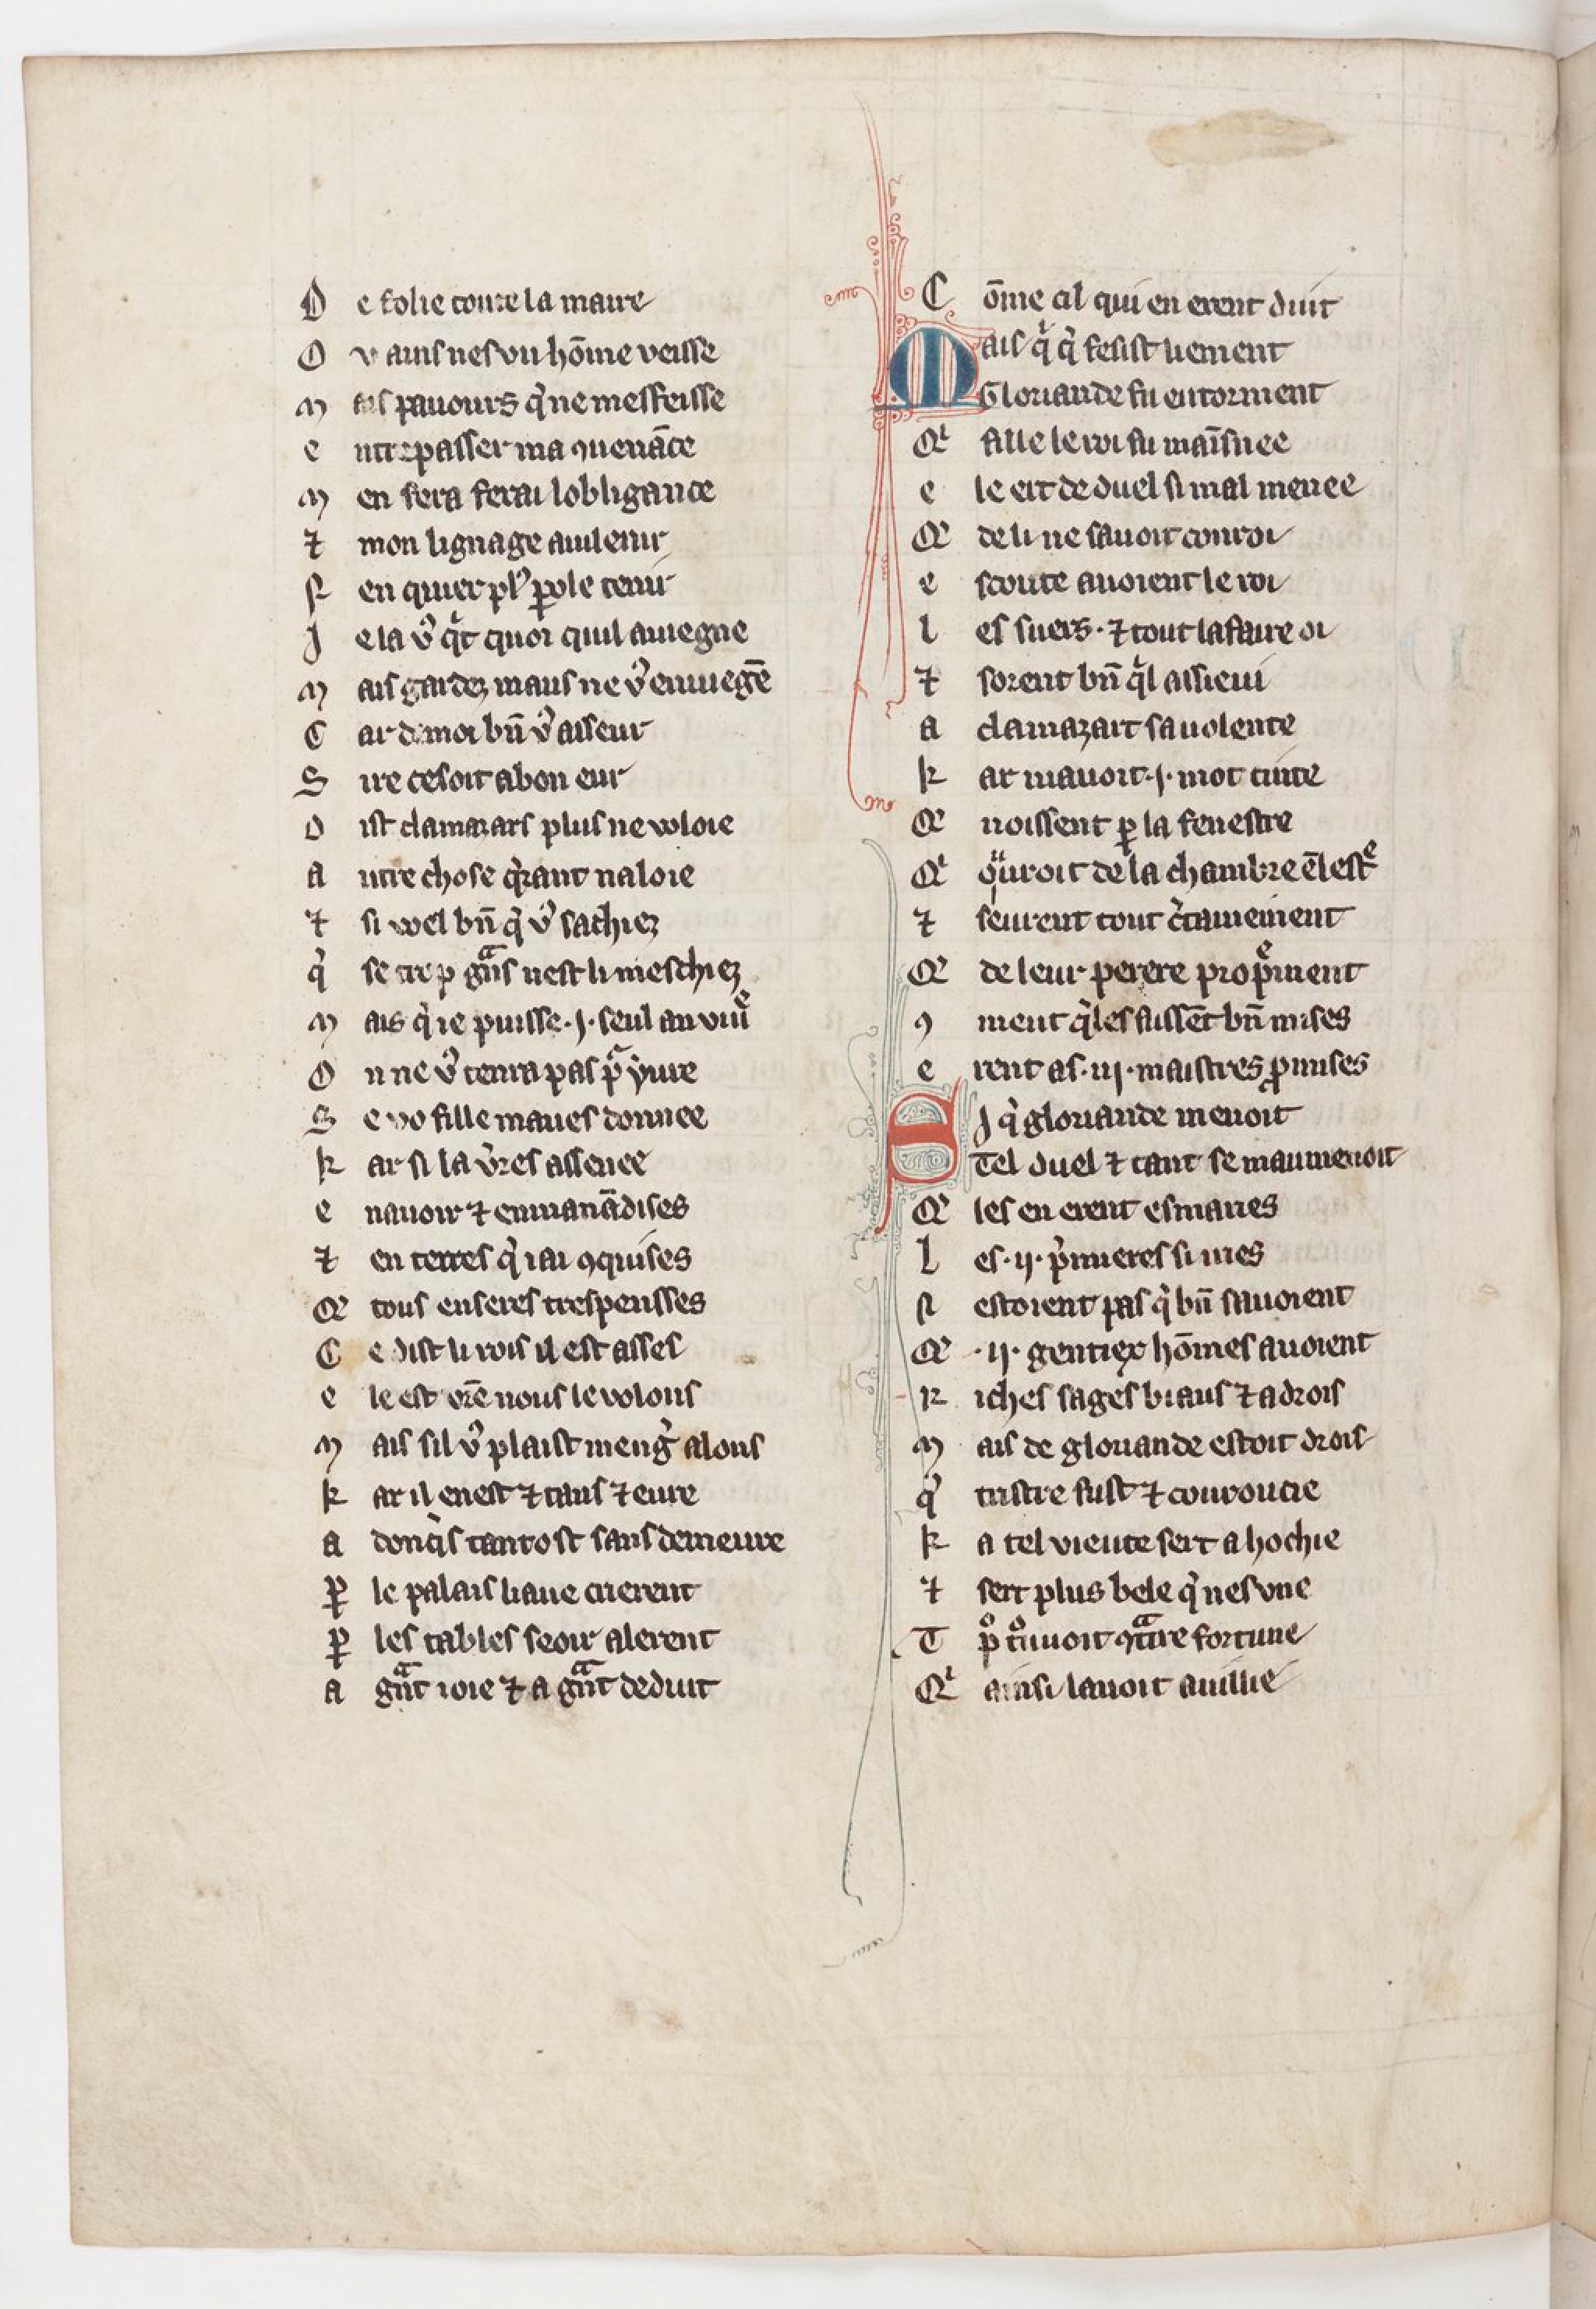 D e folie toute la maire
O v ainſ neſ vn hōme veiſſe
M aiſ pauours q̓ ne meſfeiſſe
E ntreſpaſſer ma ꝯuenāce
M en fera ferai lobligance
⁊ mon lignage auilenir
S en quier plꝰ ꝑole tenir
J e la v̾ q̓t quoi quil auiegne
M aiſ gardez mauſ ne v̾ enuiegnē
C ar de moi bn̄ v̾ aſſeur
S ire ce ſoit a bon eur
D iſt clamazarſ pluſ ne voloie
A utre choſe q̓rant naloie
⁊ ſi voel bn̄ q̓ v̾ ſachiez
q̓ ſe trop gnᷓſ neſt li meſchiez
M ais q̓ ie puiſſe ·j· ſeul an viuͤ
O n ne v̾ tenra pas pᷓ yure
S e vo fille maueſ donnee
K ar ſi la v̾res aſſenee
E n auoir ⁊ en manādiſes
⁊ en terres q̓ iai ꝯquiſes
Q̷ tous en ſeres treſpenſſes
C e diſt li rois il eſt aſſeſ
E le eſt vr̄e nous le volons
M aiſ ſil v̾ plaiſt meng̾ alonſ
K ar il en eſt ⁊ tanſ ⁊ eure
A donq̓ſ tantoſt ſanſ demeure
ꝑ le palaiſ liaue crierent
ꝑ les tableſ ſeoir alerent
A gnᷓt ioie ⁊ a gnᷓt deduit
C ōme cil qui en erent duit
M aiſ qͥ q̓ feſiſt liement
Gloriande fu en torment
Q̷ ſalle le roi fu maīſnee
E le ert de duel ſi mal menee
Q̷ de li ne ſauoit conroi
E ſcoute auoient le roi
L eſ ſuers · ⁊ tout lafaire oi
⁊ ſorent bn̄ q̓l aſſieui
A clamazart ſa volente
K ar ni auoit ·j· mot tinte
Q̷ noiſſent ꝑ la feneſtre
Q̷ ouuroit de la chambre ē leſtͤ
⁊ ſeurent tout c̓tainement
Q̷ de leur perere propͤment
ꝯ ment q̓leſ fuſſēt bn̄ miſes
E rent aſ ·iij· maiſtres ꝓmiſes
E J q̓ gloriande menoit
Tel duel ⁊ tant ſe maumenoit
Q̷ les en erent eſmaries
L eſ ·ij· p̓mieres ſi nies
N eſtoient paſ q̓ bn̄ ſauoient
Q̷ ·ij· gentiex hōmeſ auoient
R icheſ ſageſ biauſ ⁊ adroiſ
M aiſ de gloriande eſtoit droiſ
q̓ triſtre fuſt ⁊ couroucie
K a tel viente ſert a hochie
⁊ ſert plus bele q̓ neſ vne
T pͦ tͦuuoit ꝯtᷓire fortune
Q̷ ainſi lauoit auillie